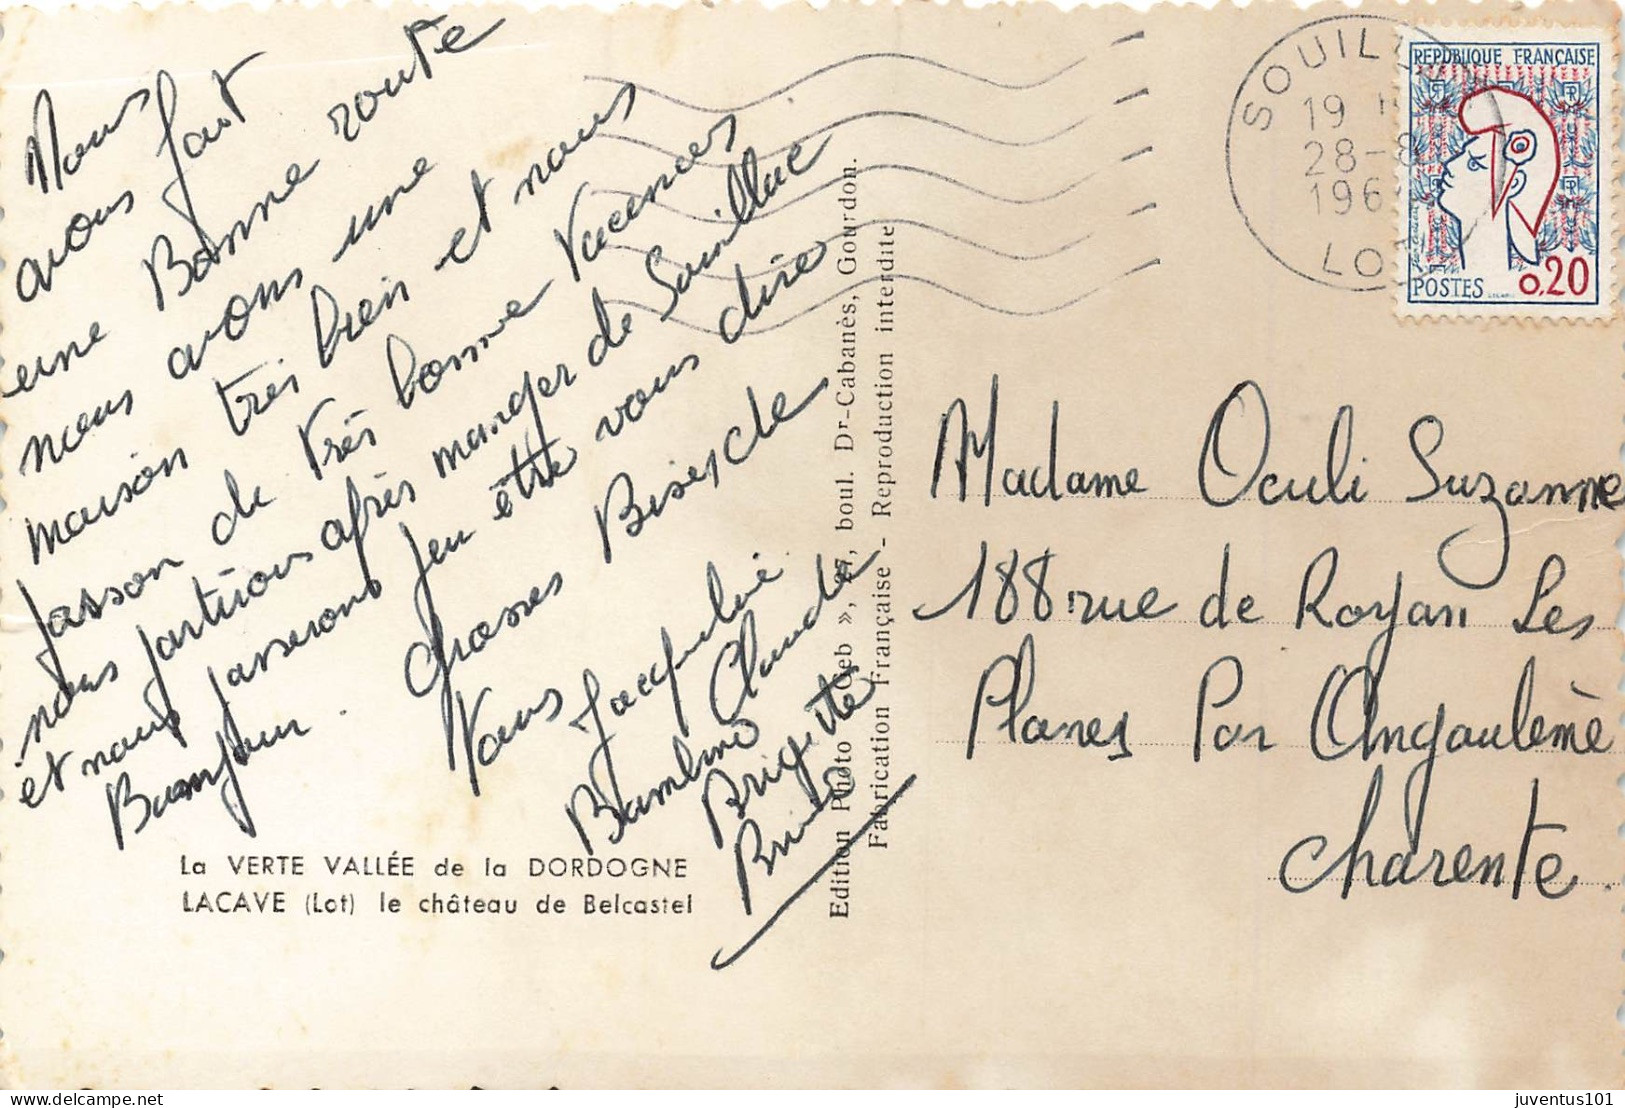 Nous
avons fait
une Bonne route
nous avons une
maison très bien et nous
passon de très bonne vacences
nous partirons après manger de Souillac
et nous passerons peu être vous dire
Bonjour. Grosses Bises de
Nous Jacqueline
Claude
Bambino
Brigitte
Bruno
La VERTE VALLÉE de la DORDOGNE
LACAVE (Lot) le château de Belcastel
Edition Photo « Oeb », boul. Dr-Cabanès, Gourdon.
Fabrication Française - Reproduction interdite
SOUIL
19
28-8
196
LO
REPUBLIQUE FRANÇAISE
POSTES 0,20
Madame Oculi Suzanne
188 rue de Royan Les
Planes Par Angoulème
Charente.
juventus101